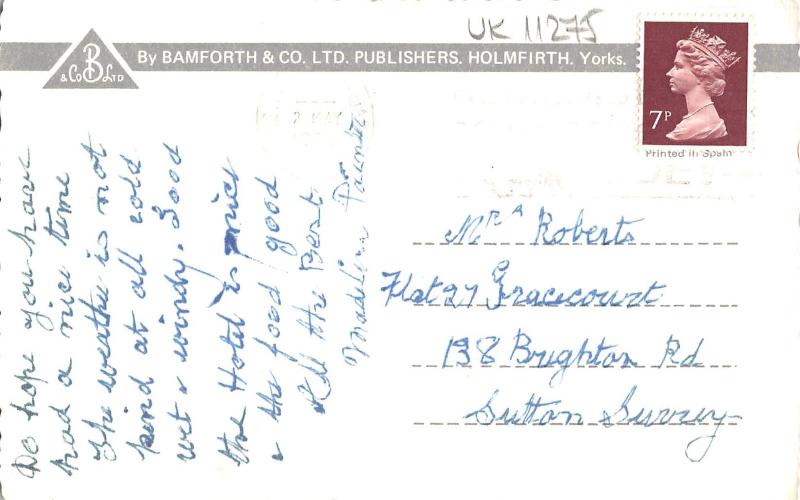 UK 11275
B
& Co LTD
By BAMFORTH & CO. LTD. PUBLISHERS. HOLMFIRTH. Yorks.
7P
Printed in Spain
Do hope you have
had a nice time
The weather is not
kind at all cold
wet & windy. Good
the Hotel is nice
& the food good
All the Best
Madeline
Mr A Roberts
Flat 27 Gracecourt
198 Brighton Rd
Sutton Surrey